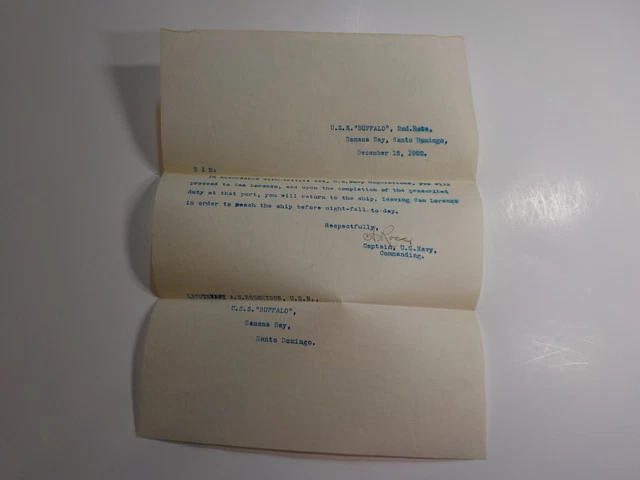 U.S.S."BUFFALO", 2nd.Rate,
Samana Bay, Santo Domingo,
December 18, 1902.
S I R:
In accordance with Article U.S.Navy Regulations, you will
proceed to San Lorenzo, and upon the completion of the prescribed
duty at that port, you will return to the ship, leaving San Lorenzo
in order to reach the ship before night-fall to-day.
Respectfully,
Captain, U.S.Navy,
Commanding.
LIEUTENANT A.S. U.S.N.,
U.S.S."BUFFALO",
Samana Bay,
Santo Domingo.